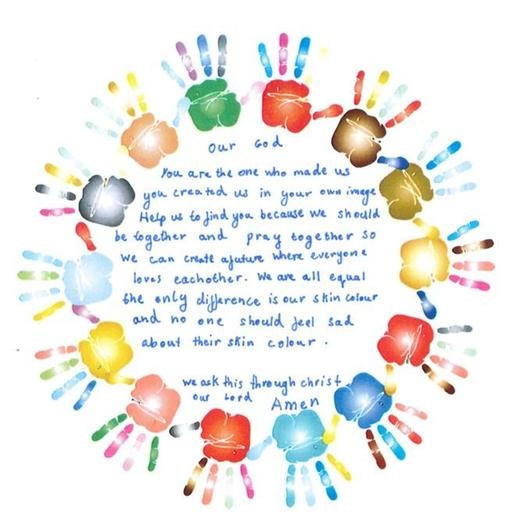 our God
You are the one who made us
you created us in your own image
Help us to find you because we should
be together and pray together so
we can create a future where everyone
loves eachother. We are all equal
the only difference is our skin colour
and no one should feel sad
about their skin colour.
we ask this through christ
our Lord Amen